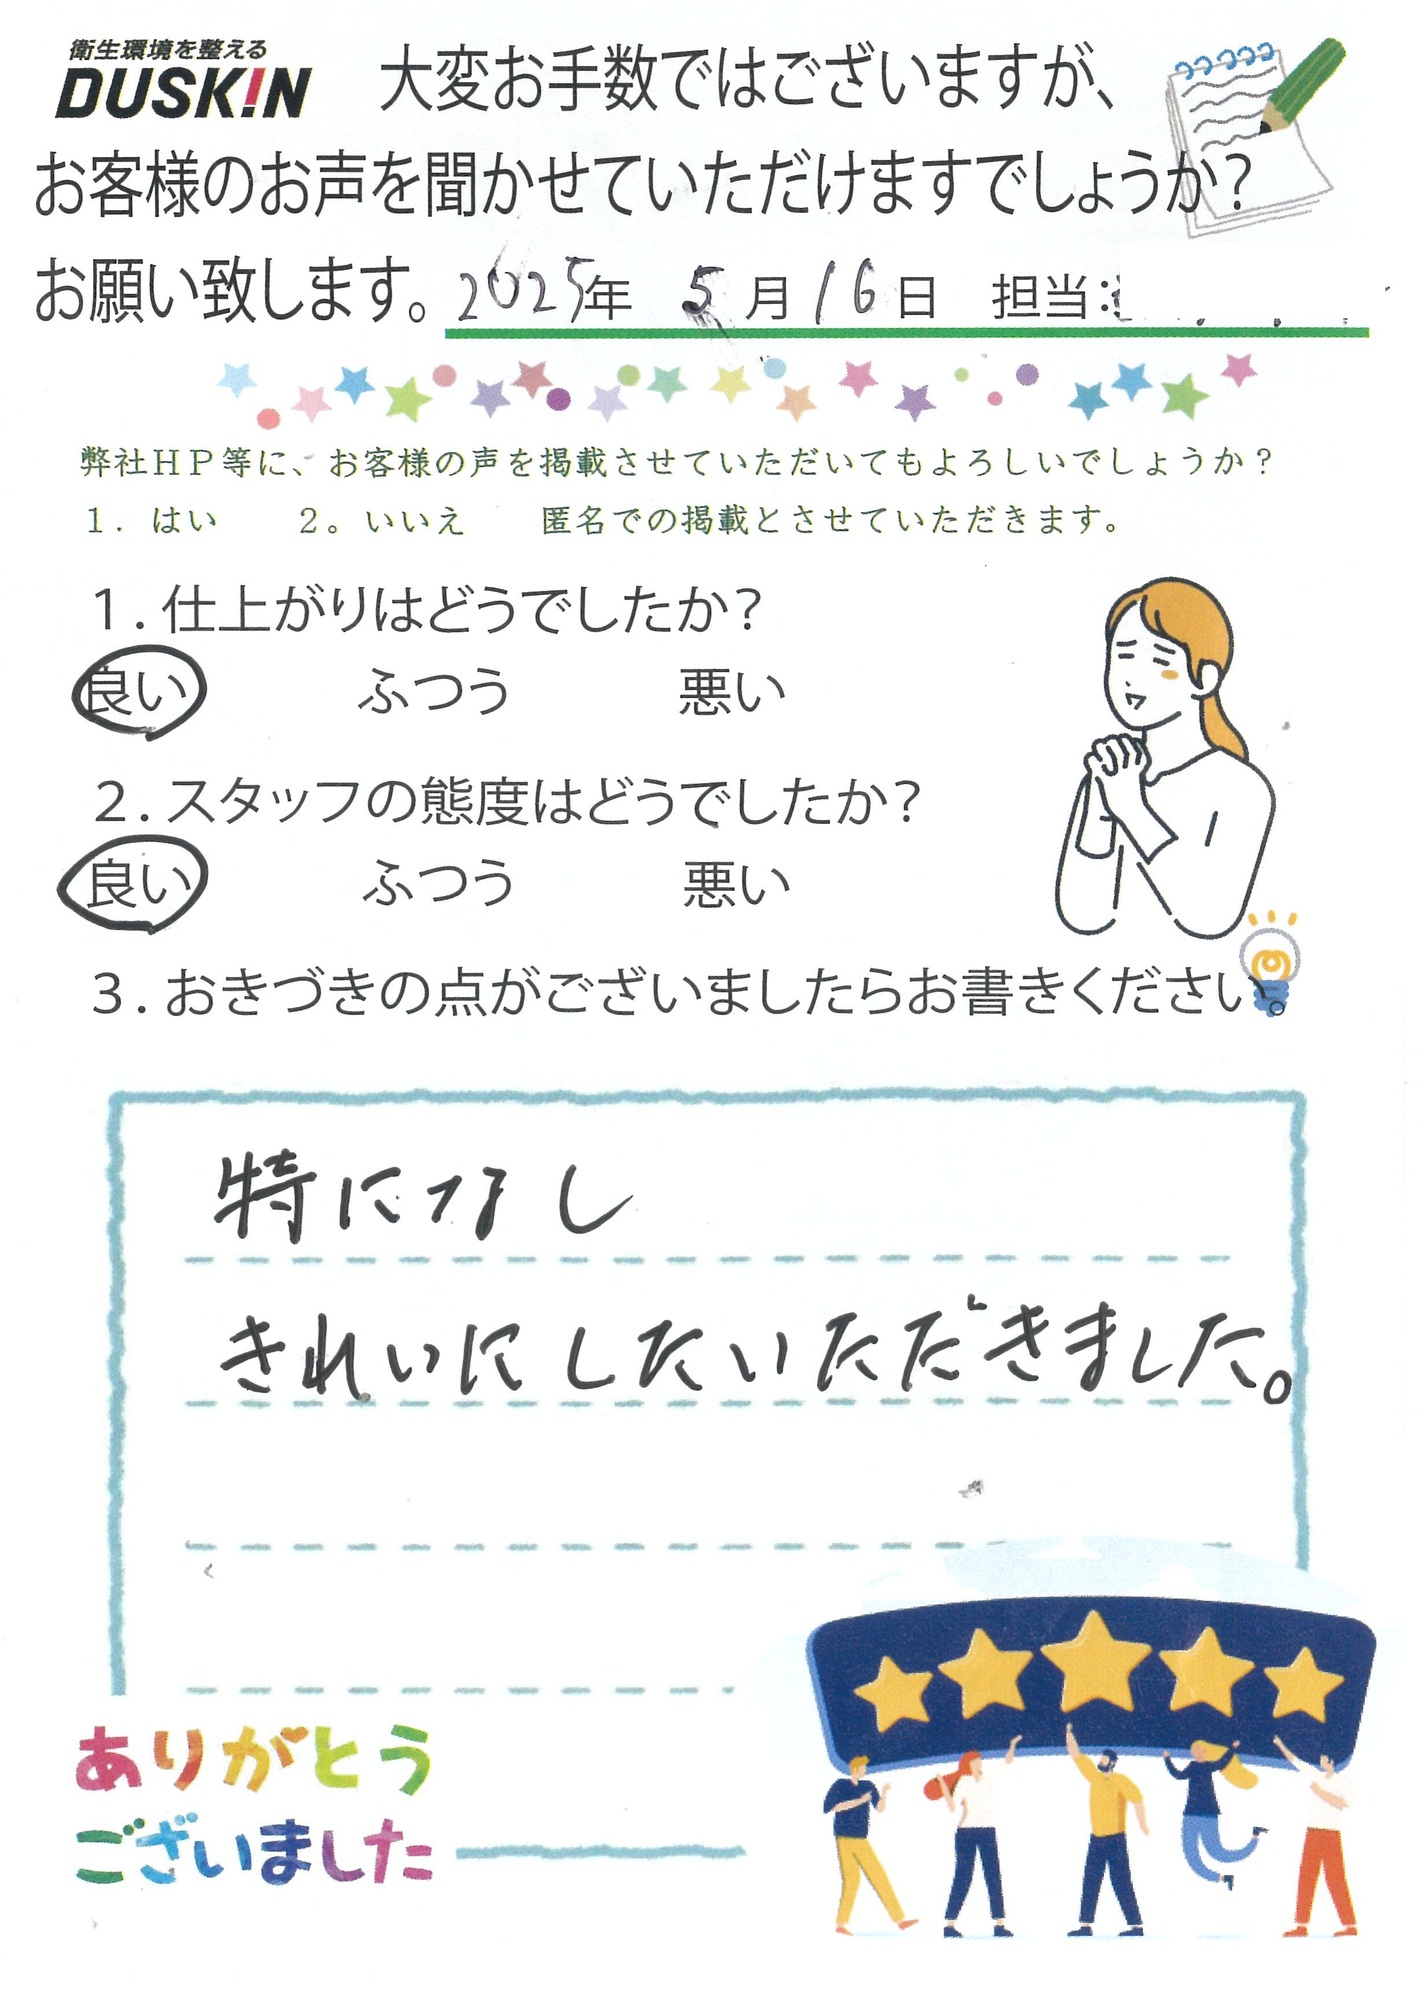 衛生環境を整える
DUSK!N
大変お手数ではございますが、
お客様のお声を聞かせていただけますでしょうか?
お願い致します。 2025年 5月16日 担当:
弊社HP等に、お客様の声を掲載させていただいてもよろしいでしょうか?
1. はい 2。いいえ 匿名での掲載とさせていただきます。
1.仕上がりはどうでしたか?
良い ふつう 悪い
2.スタッフの態度はどうでしたか?
良い ふつう 悪い
3.おきづきの点がございましたらお書きください。
特になし
きれいにしたいただきました。
ありがとう
ございました